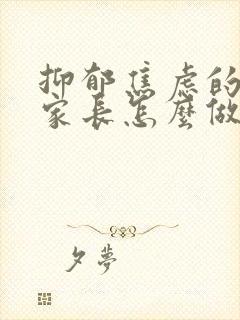 抑郁焦虑的
家长怎麼做
夕夢